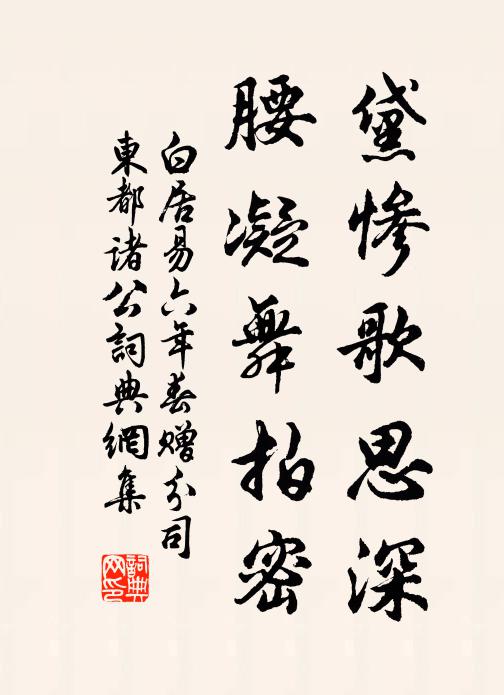 黛慘歌思深
腰凝舞拍密
白居易六年春赠分司
東都诸公詞典網集
詞典
网印